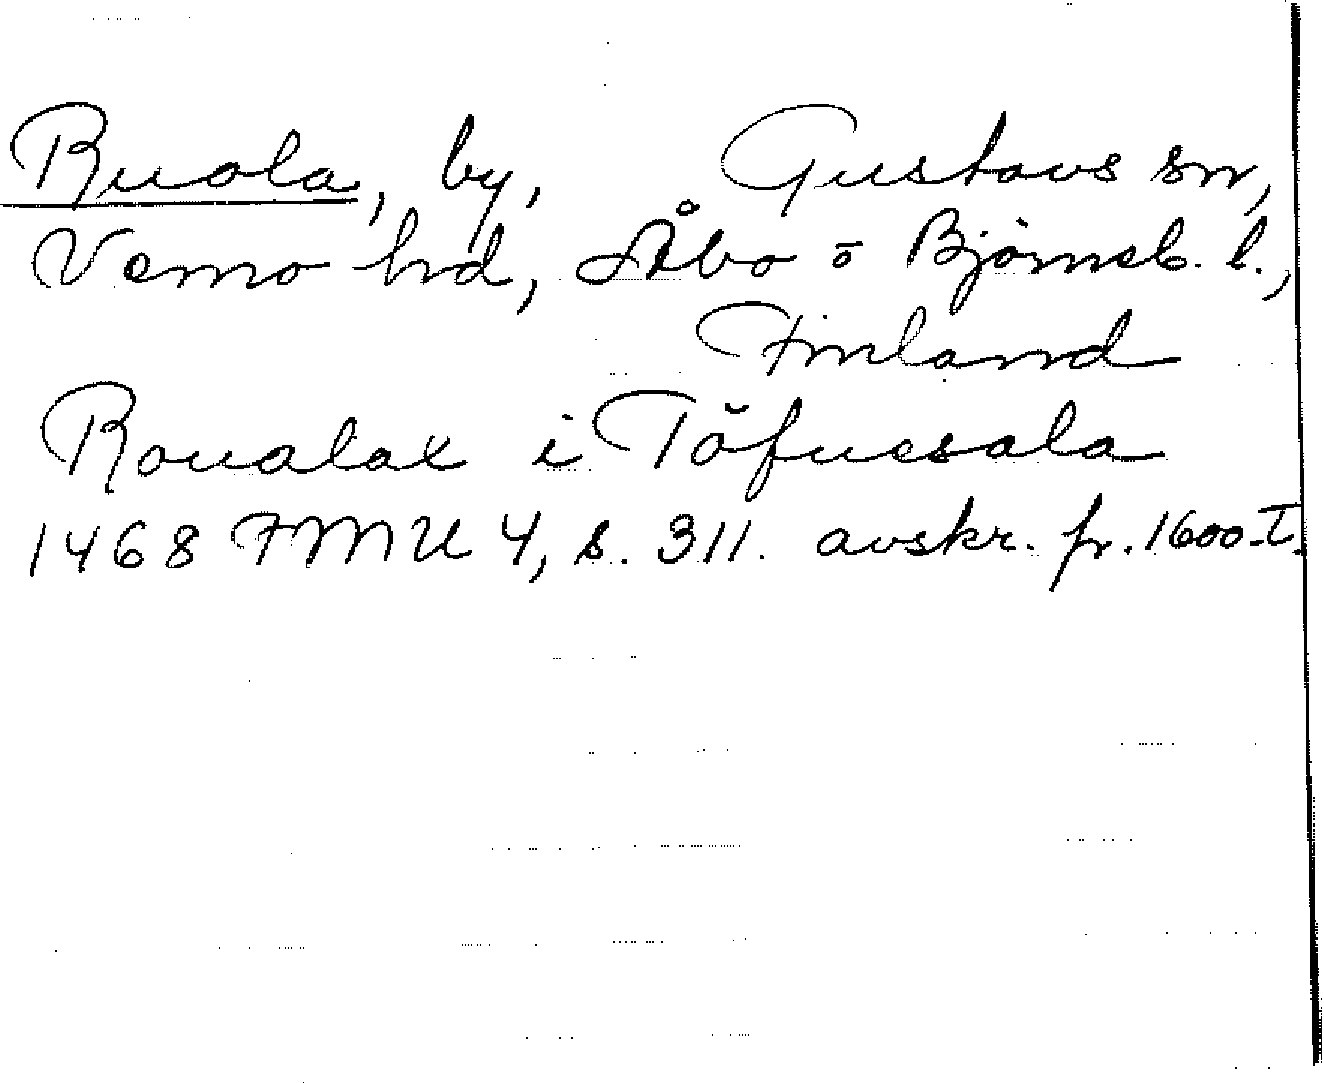 Ruola, by, Gustavs sn,
Vemo hrd, Åbo o Björneb. l.,
Finland
Roualax i Töfuesala
1468 FMU 4, s. 311. avskr. fr. 1600-T.